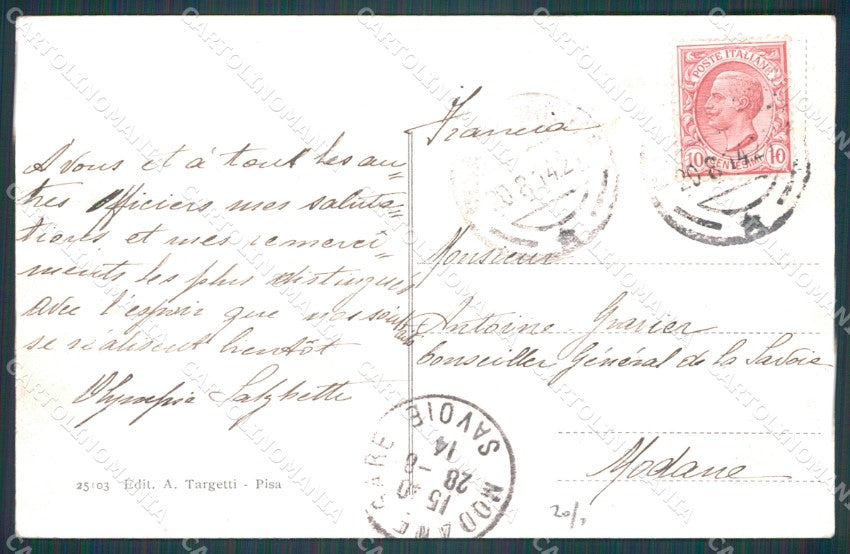 A vous et à tout les au=
tres officiers mes saluta=
tions et mes remerci=
ments les plus distingués
avec l'espoir que nos
se réalisent bientôt
Olympia
25103 Edit. A. Targetti - Pisa
Francia
POSTE ITALIANE
10 CENTESIMI 10
20 8 14
20 8 14
Monsieur
Antoine
Conseiller Général de la Savoie
Modane
MODANE GARE
15 40
28 -8
14
SAVOIE
CARTOLINOMANIA